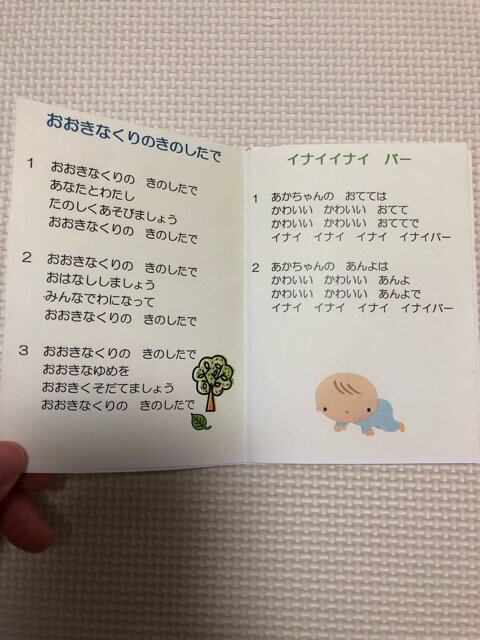 おおきなくりのきのしたで
1 おおきなくりの きのしたで
あなたとわたし
たのしくあそびましょう
おおきなくりの きのしたで
2 おおきなくりの きのしたで
おはなししましょう
みんなでわになって
おおきなくりの きのしたで
3 おおきなくりの きのしたで
おおきなゆめを
おおきくそだてましょう
おおきなくりの きのしたで
イナイイナイ バー
1 あかちゃんの おてては
かわいい かわいい おてて
かわいい かわいい おててで
イナイ イナイ イナイ イナイバー
2 あかちゃんの あんよは
かわいい かわいい あんよ
かわいい かわいい あんよで
イナイ イナイ イナイ イナイバー